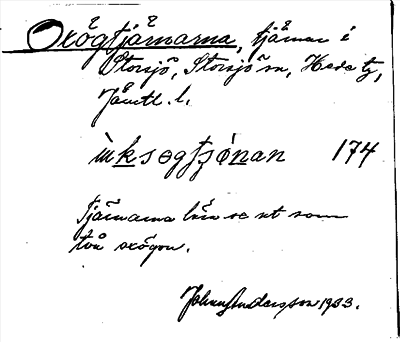 Oxögtjärnarna, tjärnar i
Storsjö, Storsjö sn, Hede tg,
Jämtl. l.
ùksøgtjɷ́nan 174
Tjärnarna lära se ut som
två oxögon.
Johan Andersson 1933.